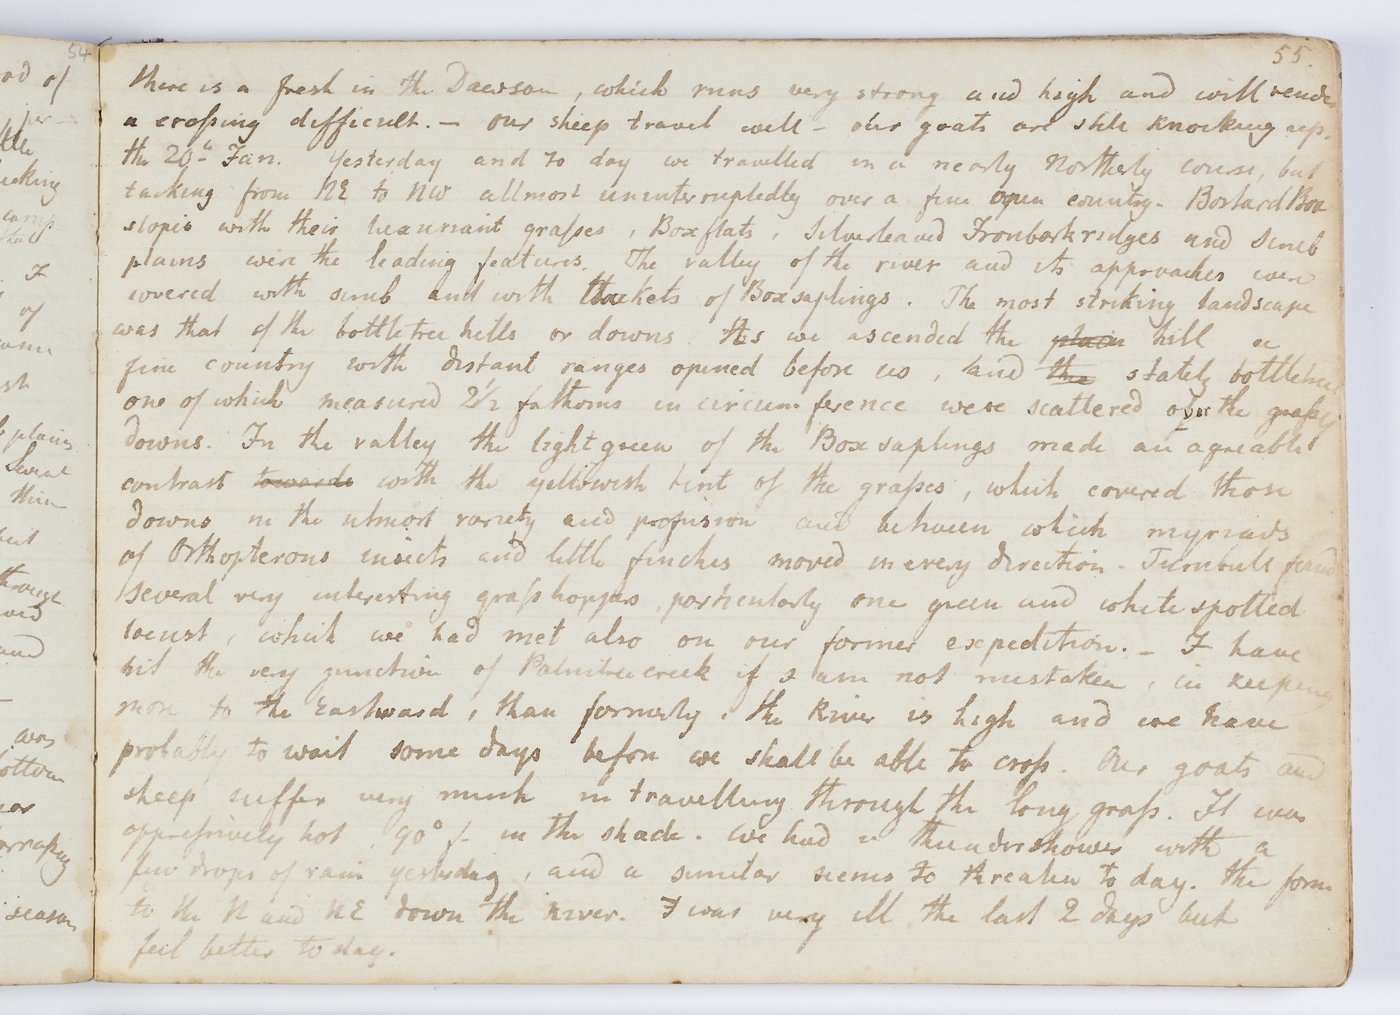 54
55.
there is a fresh in the Dawson, which runs very strong and high and will render
a crossing difficult. — Our sheep travel well — our goats are still knocking up.
the 29th Jan. Yesterday and to day we travelled in a nearly Northerly course, but
tacking from NE to NW allmost ununterruptedly over a fine open country. Bastard Box
slopes with their luxuriant grasses, Boxflats, Silverleaved Ironbarkridges and Scrub
plains were the leading features. The valley of the river and its approaches were
covered with scrub and with thickets of Boxsaplings. The most striking landscape
was that of the bottletree hills or downs. As we ascended the plain hill a
fine country with distant ranges opened before us, and the stately bottletree
one of which measured 2½ fathoms in circumference were scattered over the grassy
downs. In the valley the lightgreen of the Box saplings made an agreable
contrast towards with the yellowish tint of the grasses, which covered those
downs in the utmost variety and profusion and between which myriads
of Orthopterous insects and little finches moved in every direction. Turnbull found
several very interesting grasshoppers, particularly one green and white spotted
locust, which we had met also on our former expedition. — I have
hit the very junction of Palmtreecreek if I am not mistaken, in keeping
more to the Eastward, than formerly. The River is high and we have
probably to wait some days before we shall be able to cross. Our goats and
sheep suffer very much in travelling through the long grass. It was
oppressively hot, 90° f. in the shade. We had a thundershower with a
few drops of rain yesterday, and a similar seems to threaten to day. the form
to the N and NE down the River. I was very ill the last 2 days but
feel better to day.